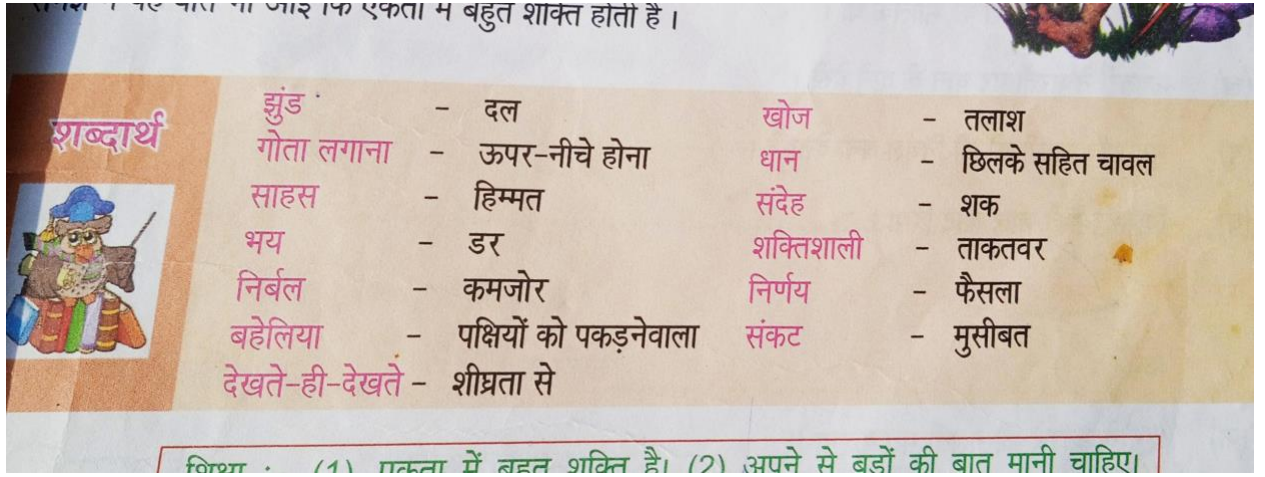 एकता में बहुत शक्ति होती है।
शब्दार्थ
झुंड - दल
गोता लगाना - ऊपर-नीचे होना
साहस - हिम्मत
भय - डर
निर्बल - कमजोर
बहेलिया - पक्षियों को पकड़नेवाला
देखते-ही-देखते - शीघ्रता से
खोज - तलाश
धान - छिलके सहित चावल
संदेह - शक
शक्तिशाली - ताकतवर
निर्णय - फैसला
संकट - मुसीबत
शिक्षा : (1) एकता में बहुत शक्ति है। (2) अपने से बड़ों की बात मानी चाहिए।